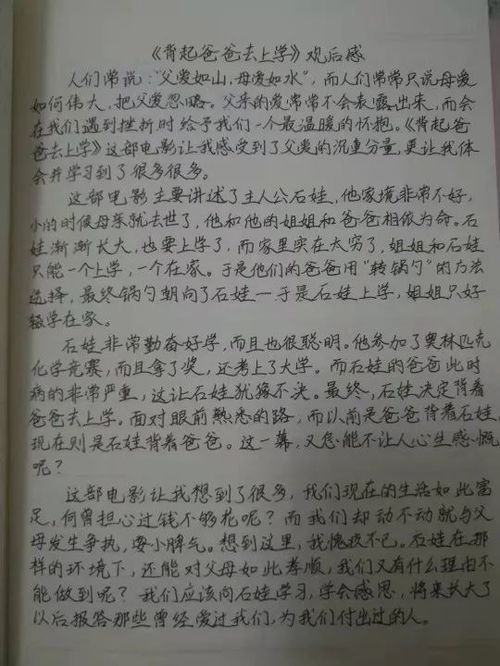 《背起爸爸去上学》观后感
人们常说:“父爱如山,母爱如水”,而人们常常只说母爱
如何伟大,把父爱忽略。父亲的爱常常不会表露出来,而会
在我们遇到挫折时给予我们一个最温暖的怀抱。《背起爸
爸去上学》这部电影让我感受到了父爱的沉重分量,更让我体
会并学习到了很多很多。
这部电影主要讲述了主人公石娃,他家境非常不好,
小的时候母亲就去世了,他和他的姐姐和爸爸相依为命。石
娃渐渐长大,也要上学了,而家里实在太穷了,姐姐和石娃
只能一个上学,一个在家。于是他们的爸爸用“转锅勺”的方法
选择,最终锅勺朝向了石娃—于是石娃上学,姐姐只好
辍学在家。
石娃非常勤奋好学,而且也很聪明。他参加了奥林匹克
化学竞赛,而且拿了奖,还考上了大学。而石娃的爸爸此时
病的非常严重,这让石娃犹豫不决。最终,石娃决定背着
爸爸去上学。面对眼前熟悉的路,而以前是爸爸背着石娃,
现在则是石娃背着爸爸。这一幕,又怎能不让人心生感慨
呢?
这部电影让我想到了很多,我们现在的生活如此富
足,何曾担心过钱不够花呢?而我们却动不动就与父
母发生争执,耍小脾气。想到这里,我愧疚不已,石娃在那
样的环境下,还能对父母如此孝顺,我们又有什么理由不
能做到呢?我们应该向石娃学习,学会感恩,将来长大了
以后报答那些曾经爱过我们,为我们付出过的人。